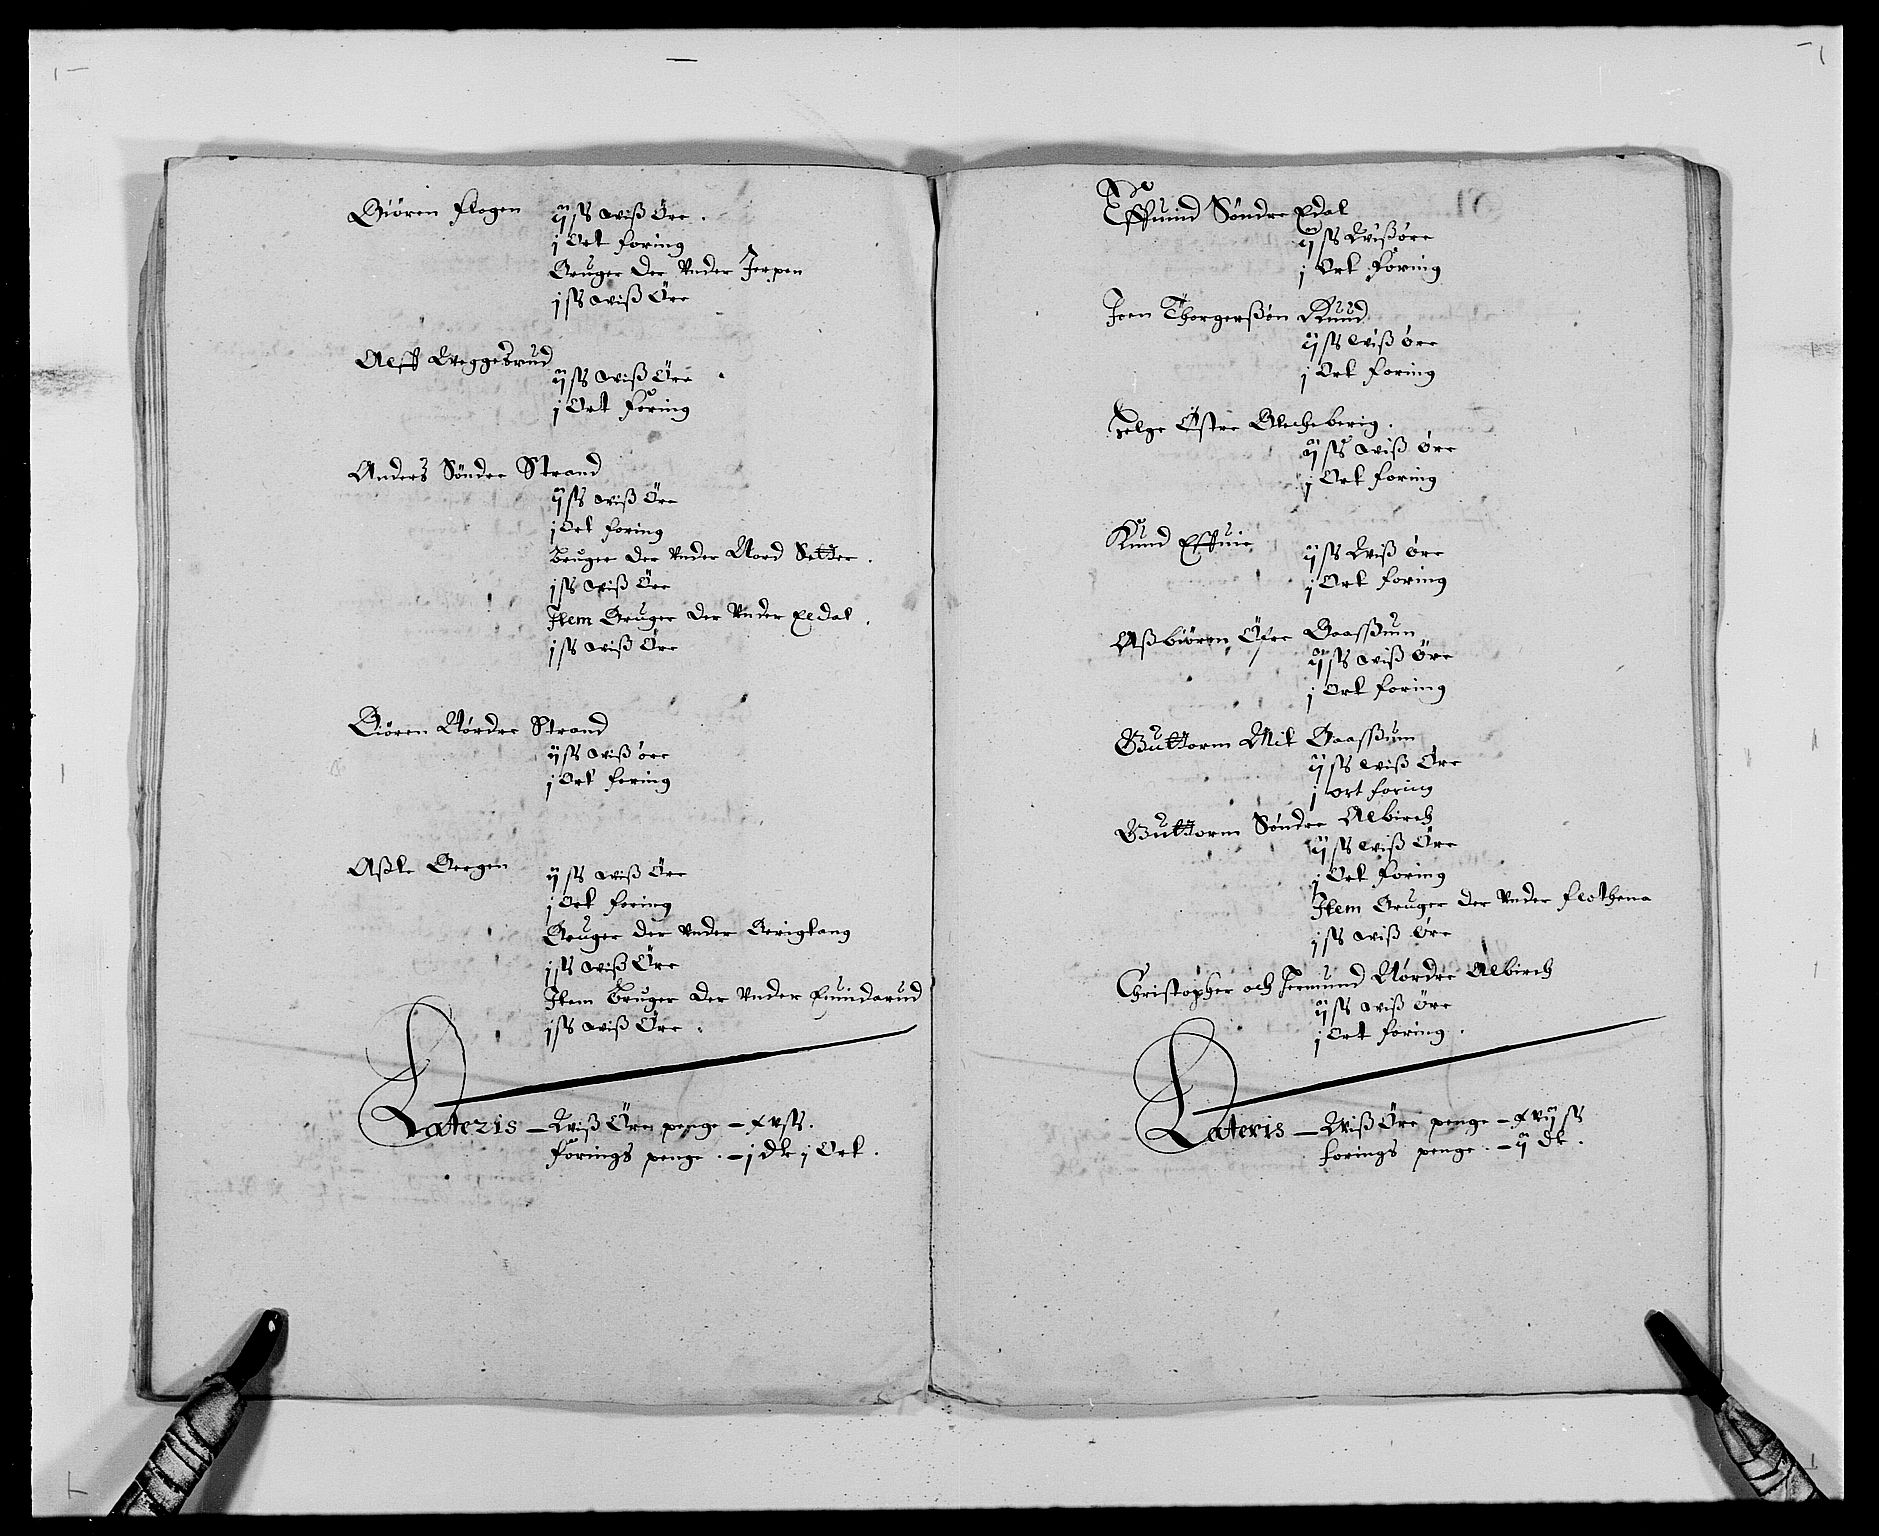 Biören Flogen ij ſß wiß Öre .
j Ort foring
Bruger der vnder Jerpen
j ſß wiß Öre
Alff Weggesrud
ij ſß wiß Öre
j Ort foring
Anders Söndre Strand
ij ſß wiß Öre
j Ort foring
bruger der vnder Nord Setter .
j ſß wiß Öre
Item Bruger der vnder Eedal .
j ſß wiß Öre
Biören Nórdre Strand
ij ſß wiß öre
j Ort foring
Aßle Bergen ij ſß wiß Öre
j Ort foring
Bruger der vnder Berigtang
j ſß wiß Öre
Item Bruger der vnder Emindarud
j ſß wiß Öre .
Lateris — WißÖren penge – xv ſß .
forings penge . – j dlr j Ort .
Effuind Söndre Edal
ij ſß Wißöre
j Ort foring
Joen Thorgerßön Ruud
ij ſß wiß öre
j Ort foring
Helge Östre Glecheberig .
ij ſß wiß öre
j Ort foring
Knud Effuie ij ſß Wiß öre
j Ort foring
Aßbiörn Öfre Gaaſßum
ij ſß wiß öre
j Ort foring
Guttorm Mit Gaaſßum
ij ſß wiß Öre
j ort foring
Guttorm Söndre Albirch
ij ſß wiß Öre
j Ort foring
Item Bruger der vnder Flothena
j ſß wiß öre
Christopher och Jermund Nórdre Albirch
ij ſß wiß Öre
j Ort foring .
Lateris — Wiß Öre penge – xvij ſß
forings penge . – ij dlr .